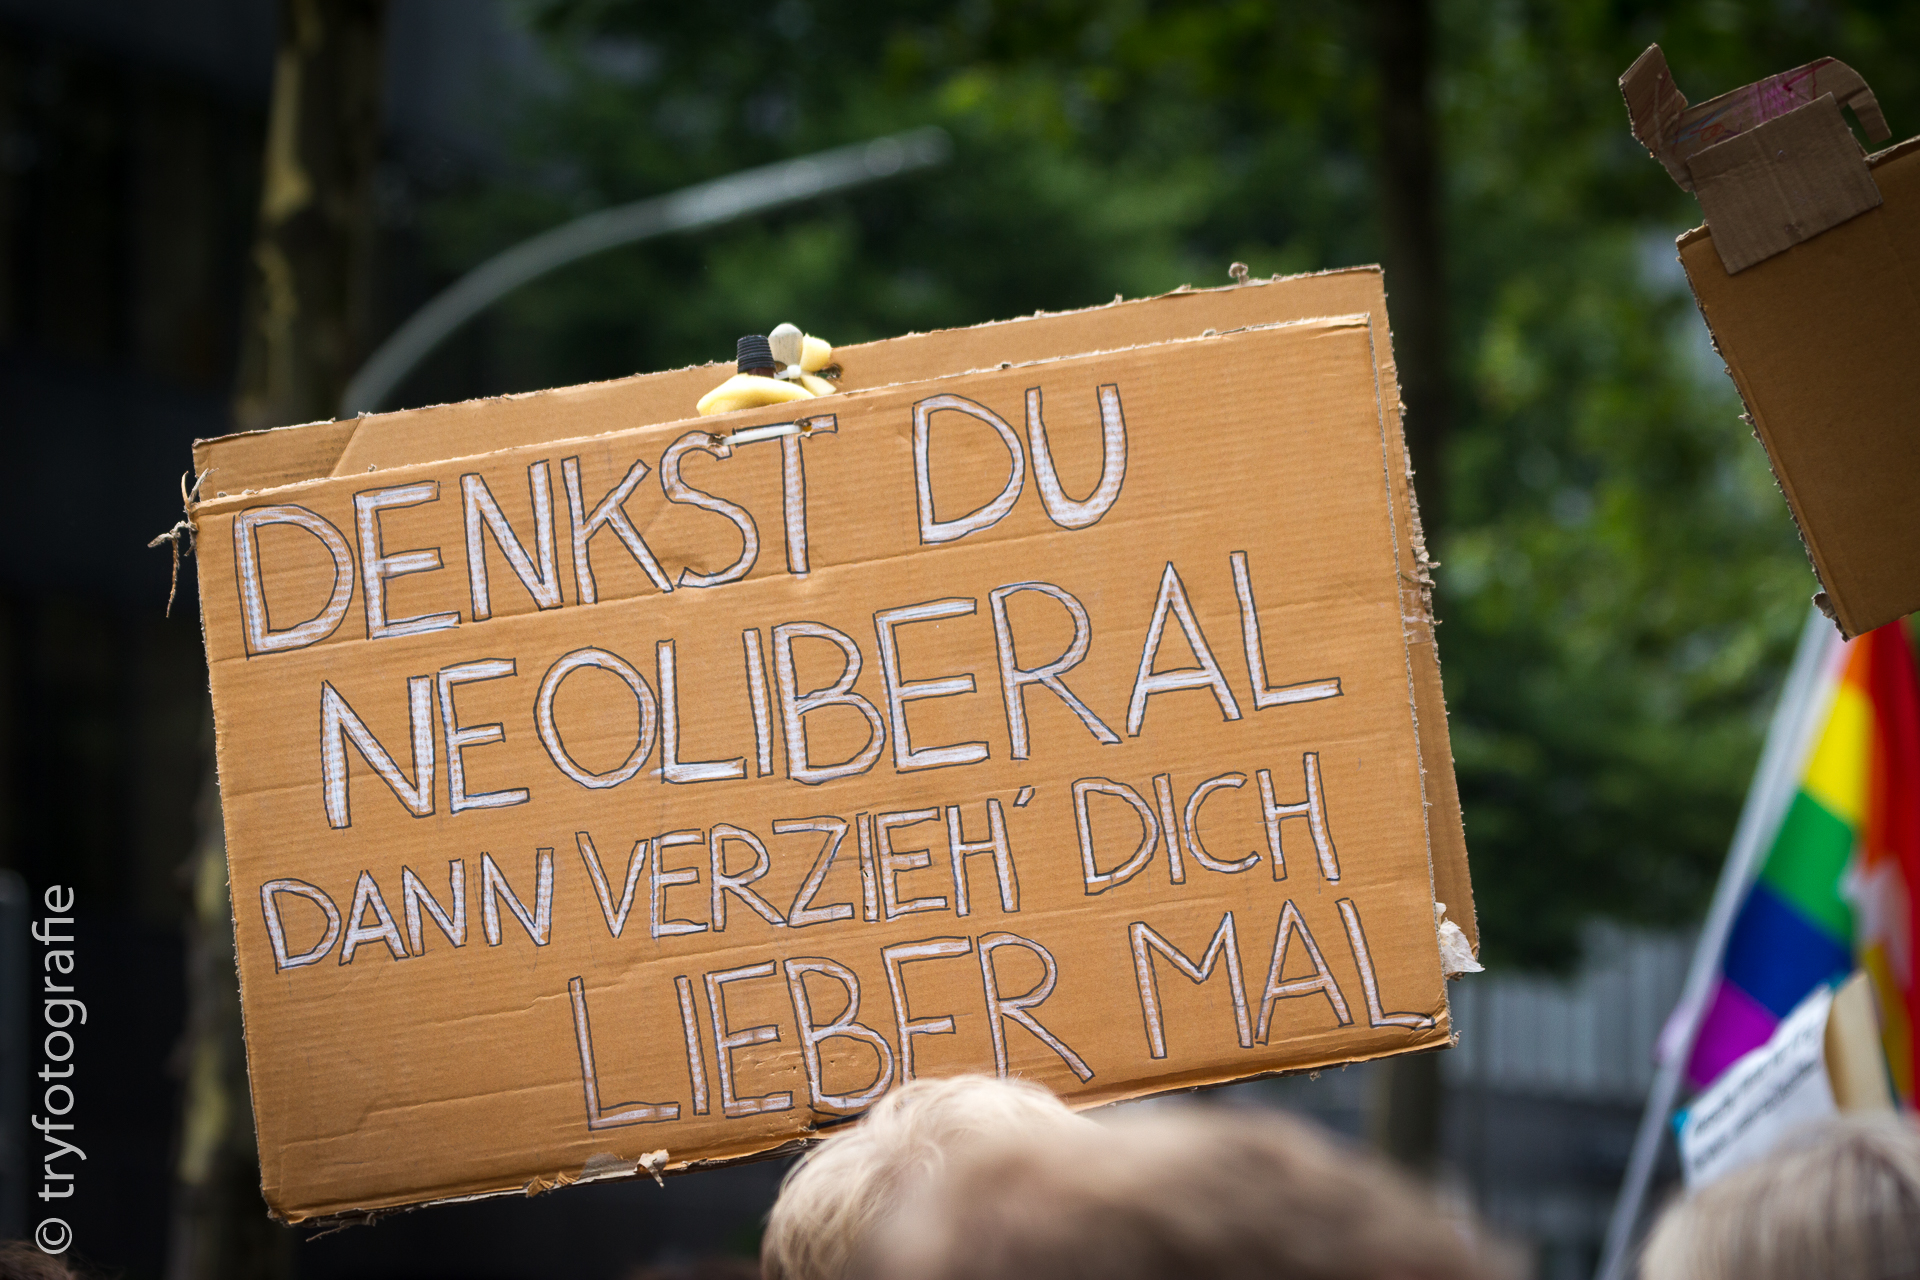 DENKST DU
NEOLIBERAL
DANN VERZIEH' DICH
LIEBER MAL
© tryfotografie